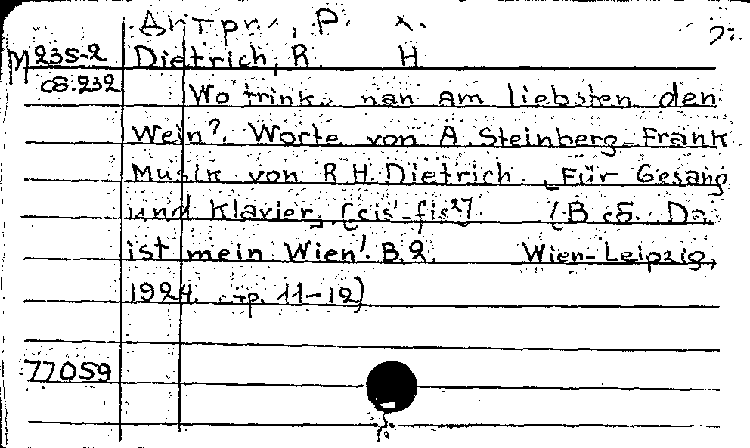 M 235-2 Dietrich, R H
сб.232 Wo trink man am liebsten den
Wein? Worte von A. Steinberg-Frank
Musik von R.H. Dietrich. Für Gesang
und Klavier. [cis'-fis²] (В сб. Da
ist mein Wien! B.2. Wien-Leipzig,
1924. стр. 11-12)
77059